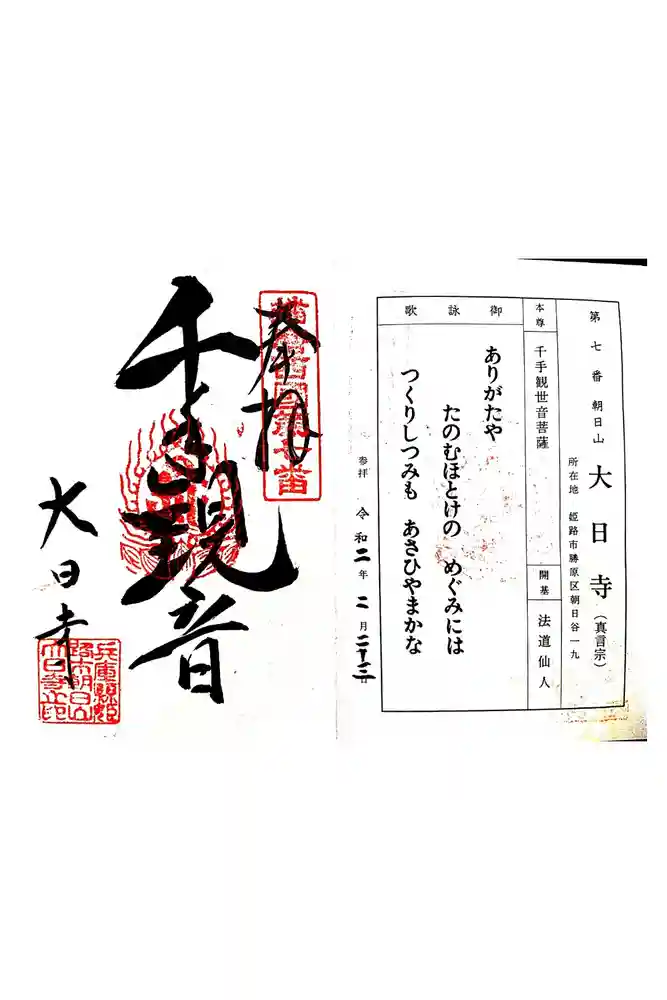 第七番 朝日山 大日寺 (真言宗)
所在地 姫路市勝原区朝日谷一九
本尊 千手観世音菩薩
開基 法道仙人
御詠歌
ありがたや
たのむほとけの めぐみには
つくりしつみも あさひやまかな
参拝 令和二年二月二十二日
奉拝
千手観音
大日寺